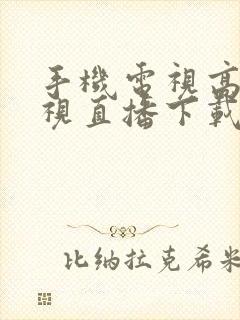 手機電視高
視直播下載
比纳拉克希米